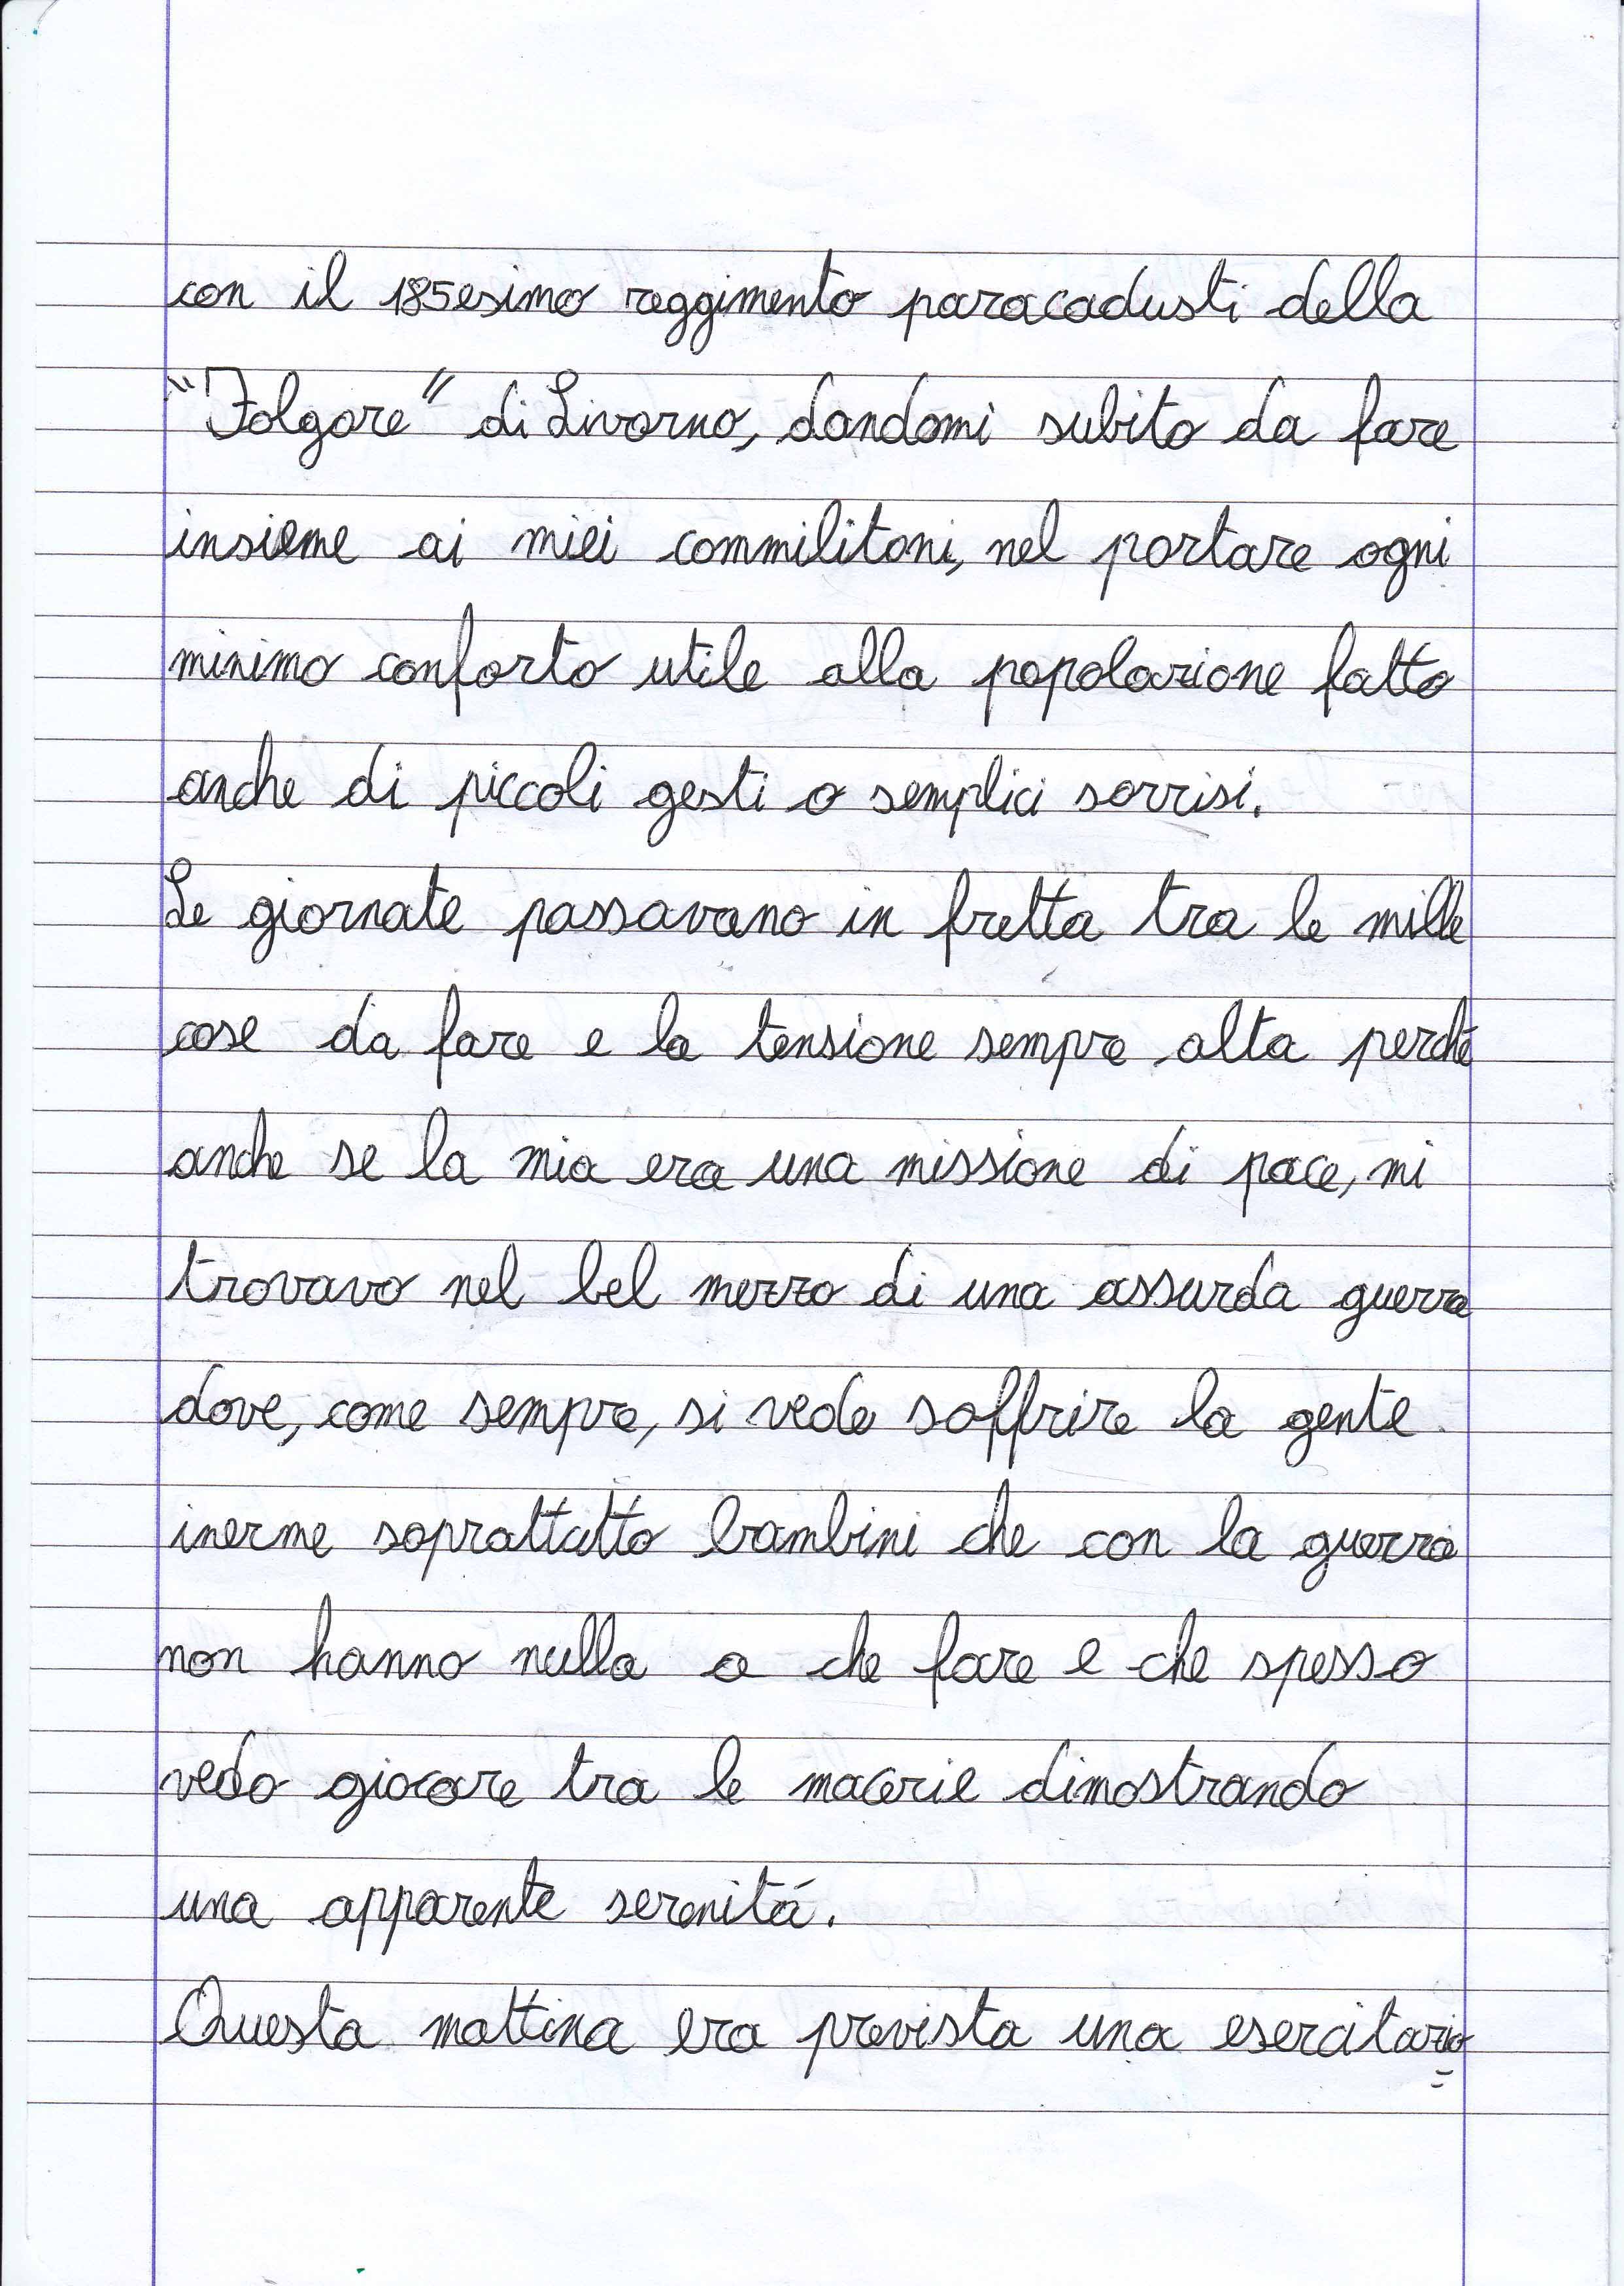 con il 185esimo reggimento paracadusti della
"Folgore" di Livorno, dandomi subito da fare
insieme ai miei commilitoni, nel portare ogni
minimo conforto utile alla popolazione fatto
anche di piccoli gesti o semplici sorrisi.
Le giornate passavano in fretta tra le mille
cose da fare e la tensione sempre alta perchè
anche se la mia era una missione di pace, mi
trovavo nel bel mezzo di una assurda guerra
dove, come sempre, si vede soffrire la gente
inerme soprattutto bambini che con la guerra
non hanno nulla a che fare e che spesso
vedo giocare tra le macerie dimostrando
una apparente serenitá.
Questa mattina era prevista una esercitazio=